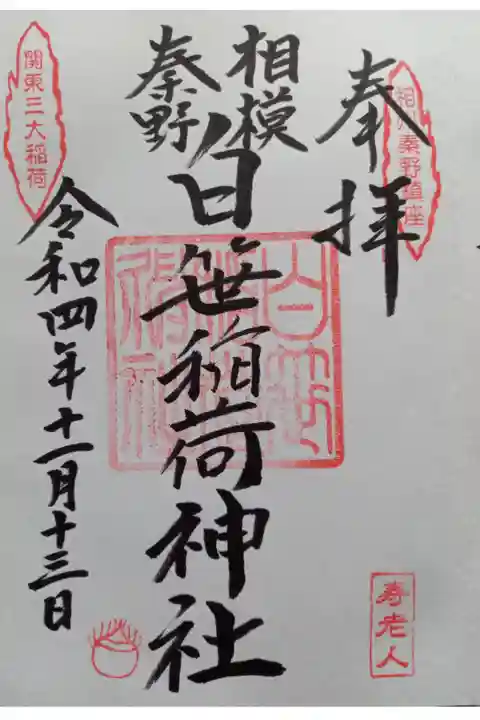 奉拝
相州秦野鎮座
相模
秦野
白笹稲荷神社
白笹稲荷神社
令和四年十一月十三日
関東三大稲荷
寿老人